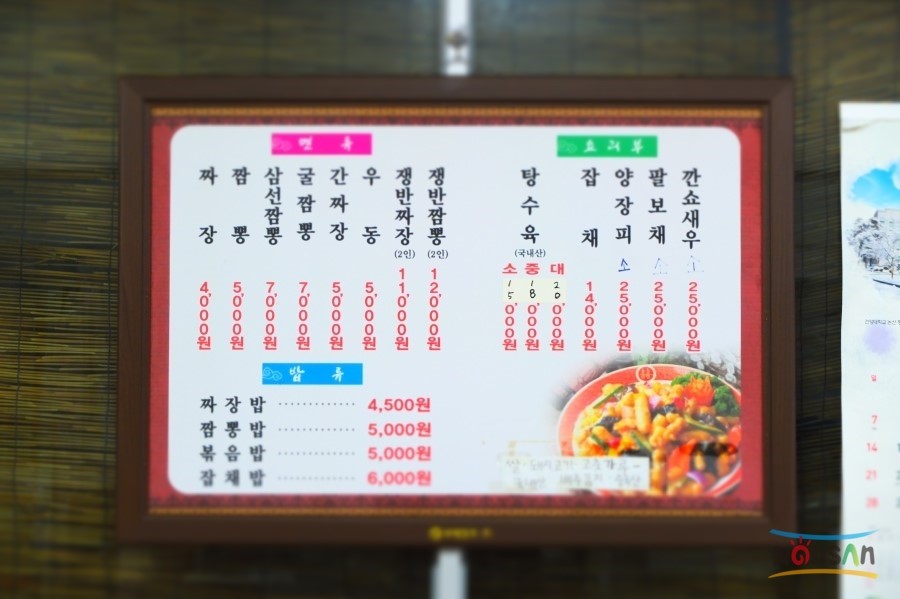 면 류
짜장 4,000원
짬뽕 5,000원
삼선짬뽕 7,000원
굴짬뽕 7,000원
간짜장 5,000원
우동 5,000원
쟁반짜장 (2인) 11,000원
쟁반짬뽕 (2인) 12,000원
밥 류
짜장밥 ············ 4,500원
짬뽕밥 ············ 5,000원
볶음밥 ············ 5,000원
잡채밥 ············ 6,000원
요리부
탕수육 (국내산)
소 15,000원
중 18,000원
대 20,000원
잡채 14,000원
양장피 소 25,000원
팔보채 소 25,000원
깐쇼새우 소 25,000원
일
7
14
21
28